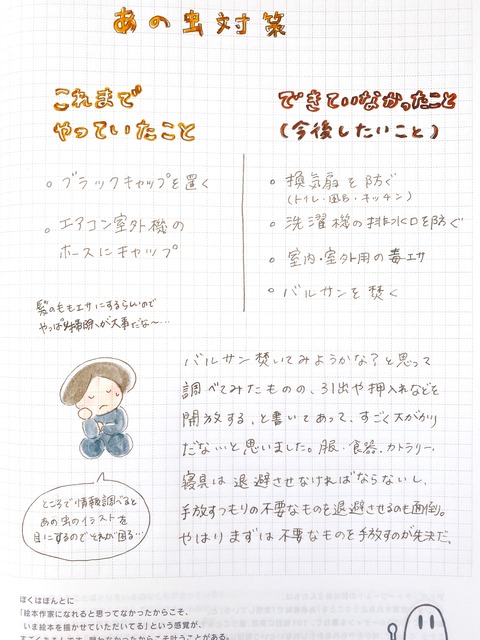 あの虫対策
これまで
やっていたこと
・ブラックキャップを置く
・エアコン室外機の
ホースにキャップ
髪の毛もエサにするらしいので
やっぱ掃除が大事だな〜…
できていなかったこと
(今後したいこと)
・換気扇を防ぐ
(トイレ・風呂・キッチン)
・洗濯機の排水口を防ぐ
・室内・室外用の毒エサ
・バルサンを焚く
バルサン焚いてみようかな?と思って
調べてみたものの、引出や押入れなどを
開放する、と書いてあって、すごく大がかり
だな、と思いました。服・食器・カトラリー、
寝具は退避させなければならないし、
手放すつもりの不要なものを退避させるのも面倒。
やはりまずは不要なものを手放すのが先決だ。
ところで情報調べると
あの虫のイラストを
目にするのでそれが困る…
ぼくはほんとに
「絵本作家になれると思ってなかったからこそ、
いま絵本を描かせていただいてる」という感覚が、